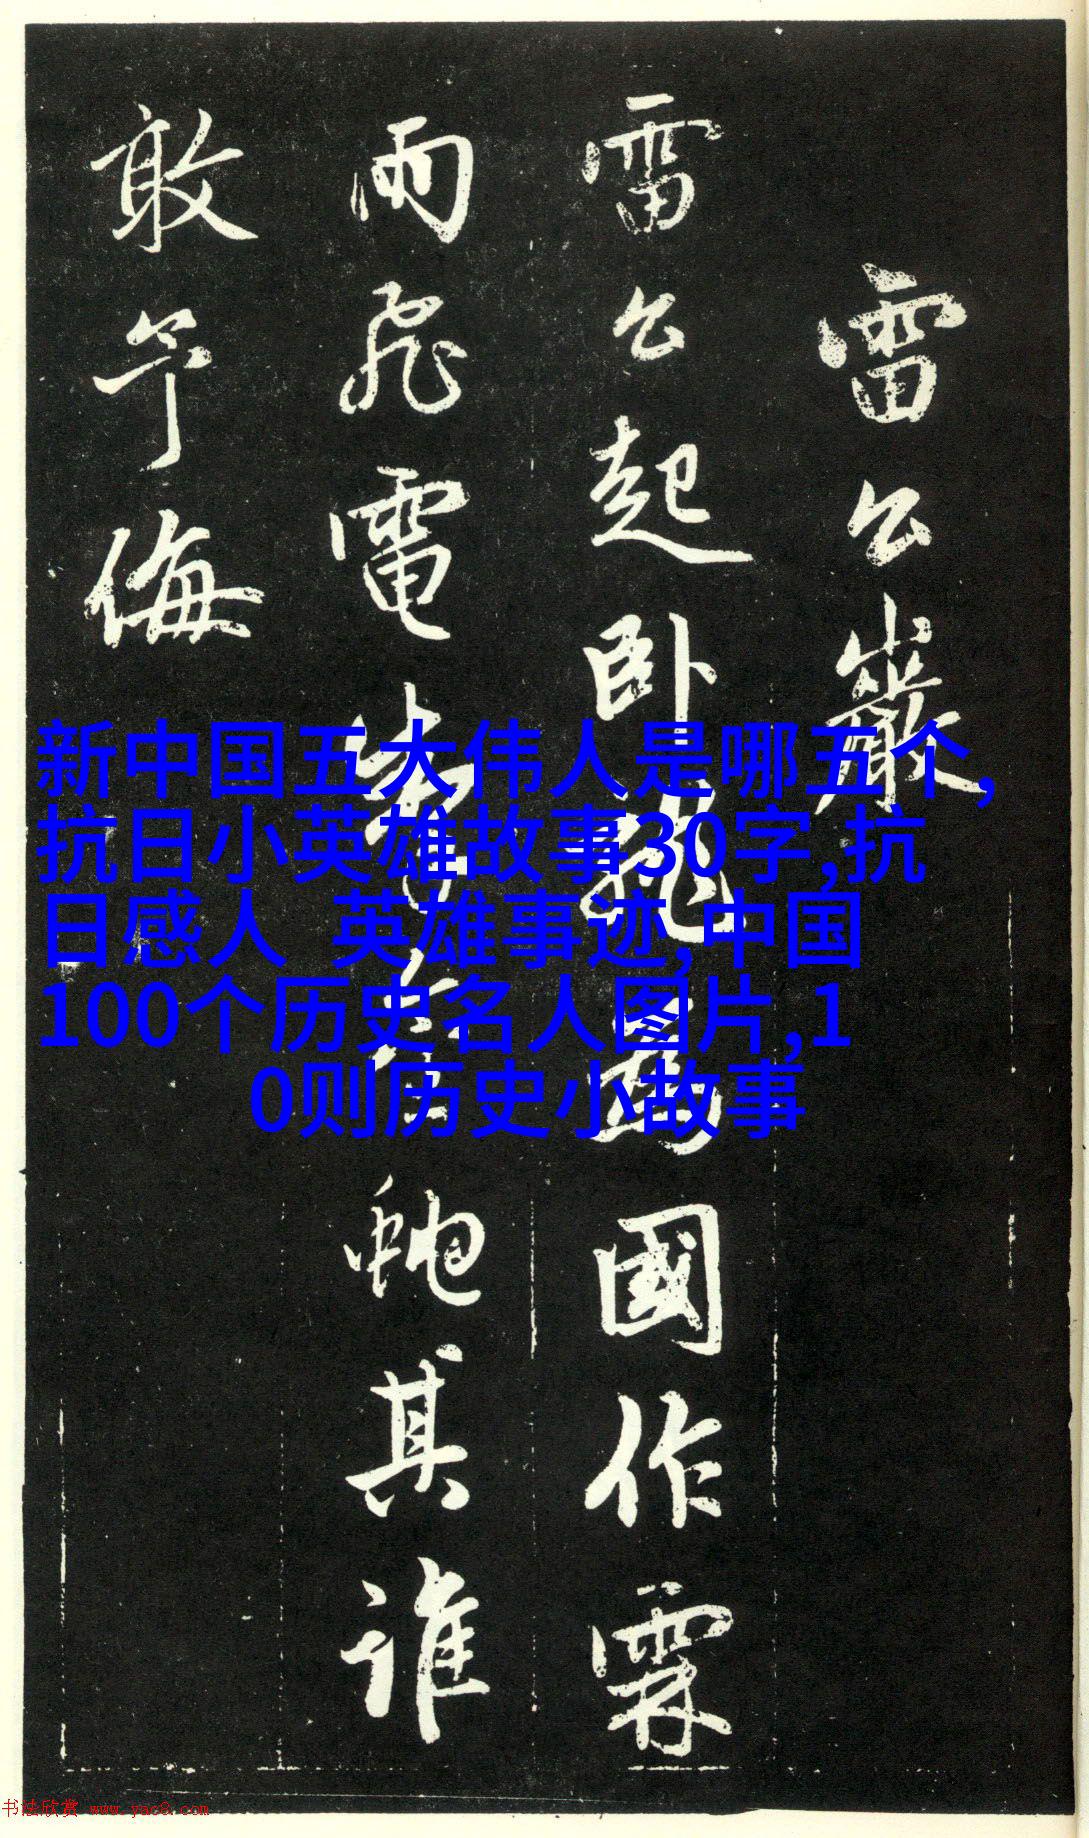 雷公巖
雷公起卧龍為國作霖
雨飛電掣金虵其誰
敢予侮
新中国五大伟人是哪五个,
抗日小英雄故事30字,抗
日感人 英雄事迹,中国
100个历史名人图片,1
0则历史小故事
书法欣赏 www.yac8.com